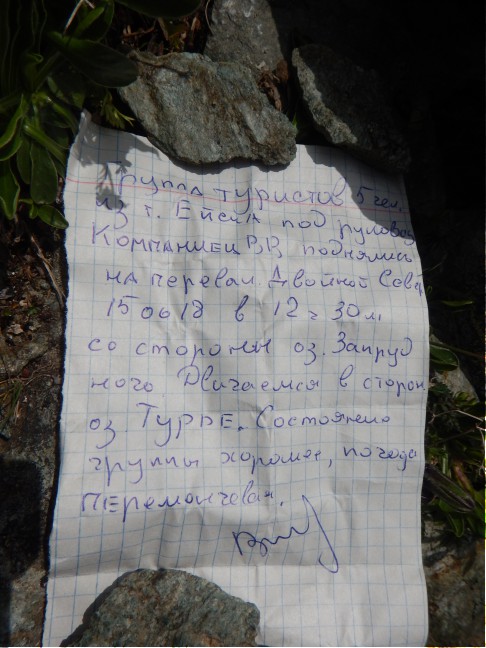 Группа туристов 5 чел.
из г. Ейска под руковод
Компаниец В.В. поднялись
на перевал Двойной Север
150618 в 12 ч 30 м
со стороны оз. Запруд
ного. Двигаемся в сторон
оз. Турье. Состояние
группы хорошее, погода
переменчевая.